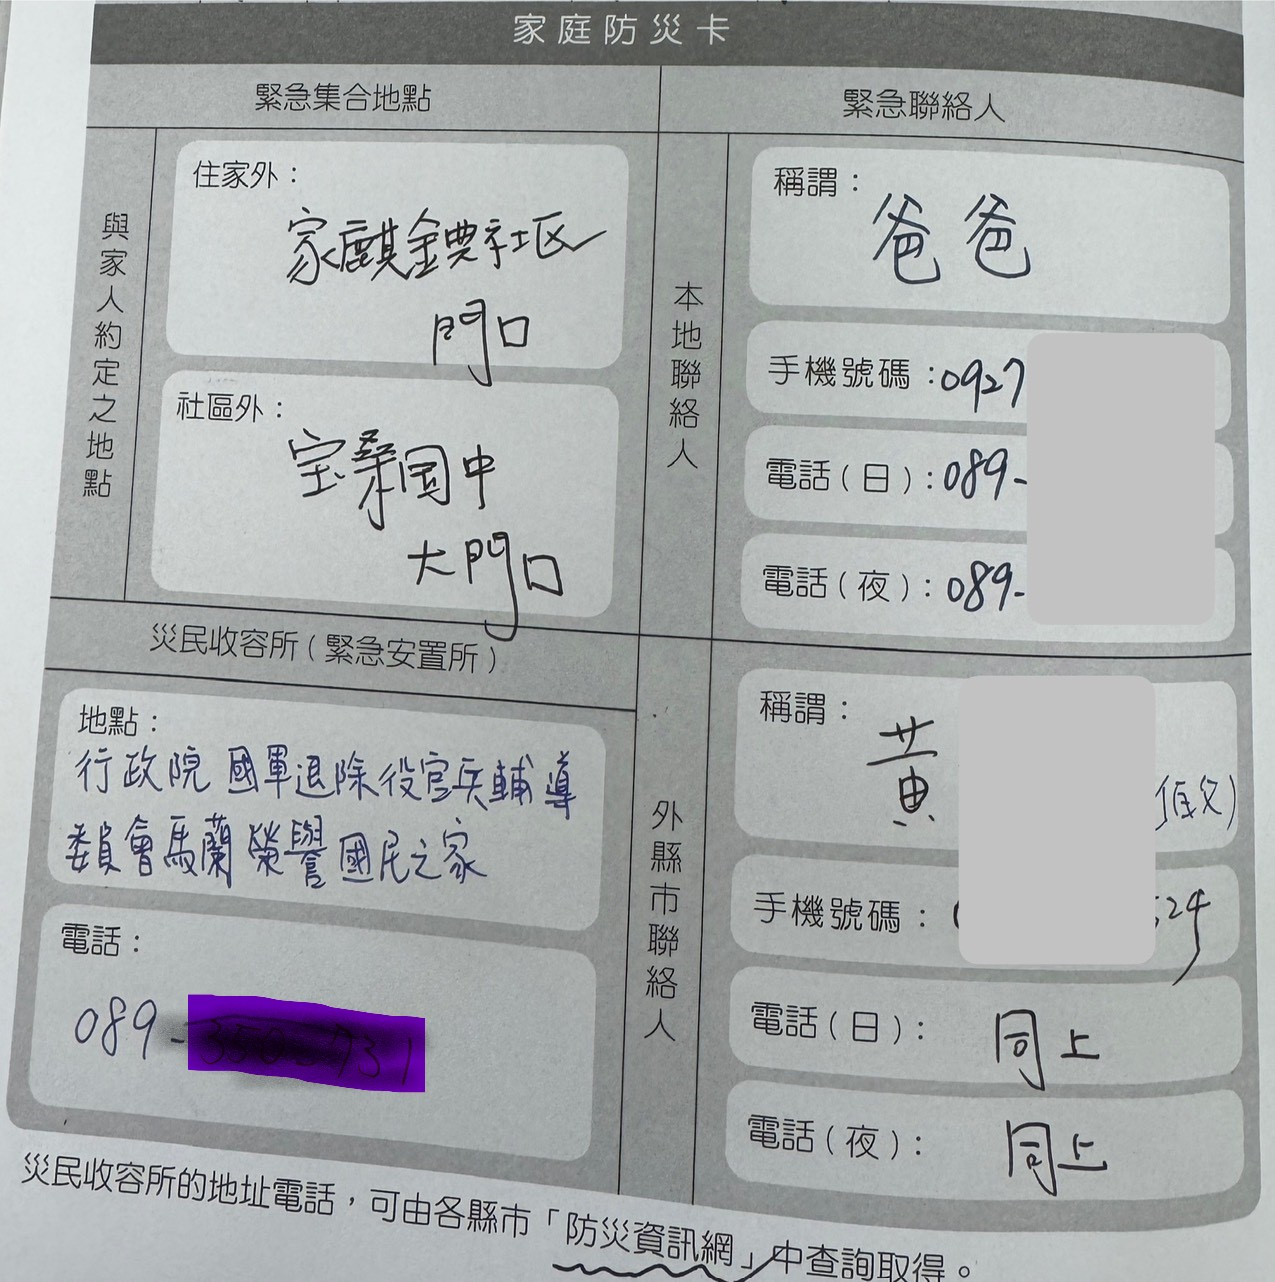 家庭防災卡
緊急集合地點
與家人約定之地點
住家外：
家麒鎮農社区
門口
社區外：
宝桑国中
大門口
緊急聯絡人
本地聯絡人
稱謂：
爸爸
手機號碼：0927
電話（日）：089-
電話（夜）：089-
災民收容所（緊急安置所）
地點：
行政院國軍退除役官兵輔導
委員會馬蘭榮譽國民之家
電話：
089-
外縣市聯絡人
稱謂：
黃
手機號碼：
電話（日）：
同上
電話（夜）：
同上
災民收容所的地址電話，可由各縣市「防災資訊網」中查詢取得。